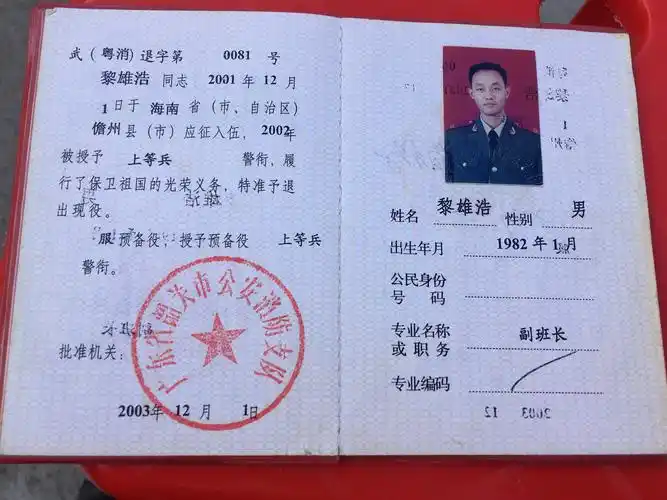 武(粤消)退字第 0081 号
黎雄浩 同志 2001 年 12 月
1日于 海南 省(市、自治区)
儋州县(市)应征入伍,2002年
被授予 上等兵 警衔,履
行了保卫祖国的光荣义务,特准予退
出现役。
服预备役,授予预备役 上等兵
警衔。
批准机关:
广东省韶关市公安消防支队
2003年 12 月 1日
姓名 黎雄浩 性别 男
出生年月 1982 年 1 月
公民身份
号 码
专业名称 副班长
或 职 务
专业编码